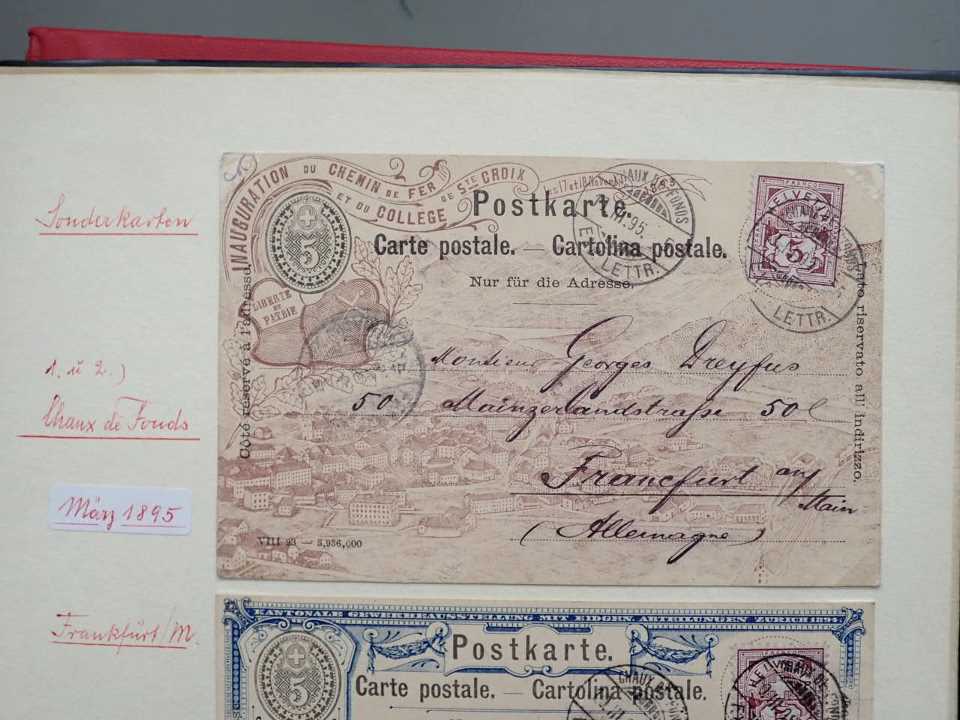 Sonderkarten
1. u 2.)
Chaux de Fonds
März 1895
Frankfurt/M.
INAUGURATION DU CHEMIN DE FER DE STE CROIX
ET DU COLLÈGE
5
LIBERTÉ ET PATRIE
Postkarte.
Carte postale. — Cartolina postale.
Nur für die Adresse.
CHAUX DE FONDS
95
LETTR.
HELVETIA
5
LETTR.
Côté réservé à l'adresse.
Lato riservato all' indirizzo.
Monsieur Georges Dreyfus
50 Mainzerlandstraße 50
Francfurt
Main
(Allemagne)
VIII 93 — 3,936,000
KANTONALE GEWERBEAUSSTELLUNG MIT EIDGEN. ABTEILUNGEN ZÜRICH 1894
5
Postkarte.
Carte postale. — Cartolina postale.
CHAUX DE FONDS